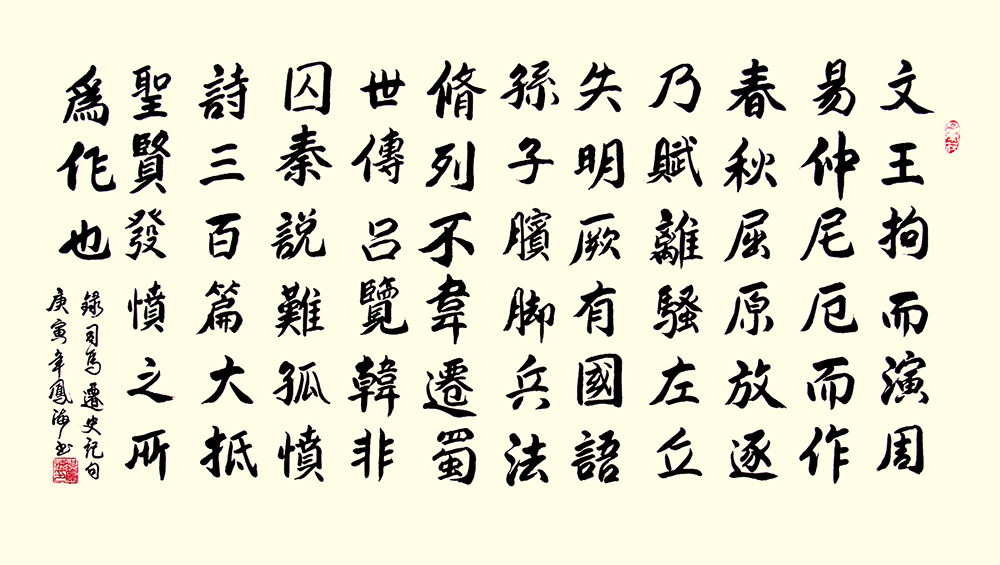 文王拘而演周
易仲尼厄而作
春秋屈原放逐
乃賦離騷左丘
失明厥有國語
孫子臏脚兵法
脩列不韋遷蜀
世傳呂覽韓非
囚秦說難孤憤
詩三百篇大抵
聖賢發憤之所
為作也
錄司馬遷史記句
庚寅年鳳海书